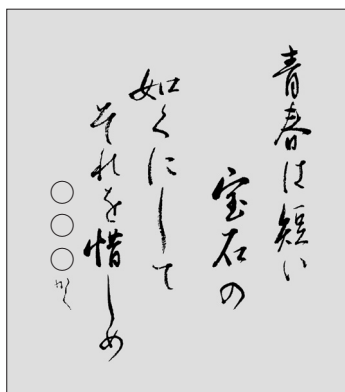 青春は短い
宝石の
如くにして
それを惜しめ
○○○かく